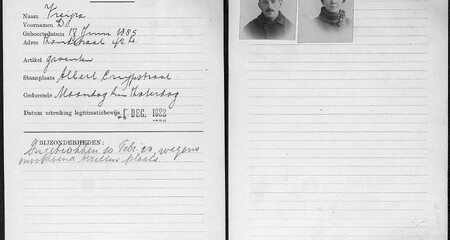 Naam Vreyra
Voornamen D.
Geboortedatum 17 Juni 1885
Adres
Artikel groenten
Staanplaats Albert Cuypstraat
Gedurende Maandag t/m Zaterdag
Datum uitreiking legitimatiebewijs DEC. 1922
BIJZONDERHEDEN:
Ingetrokken 20 Febr. wegens
plaats.